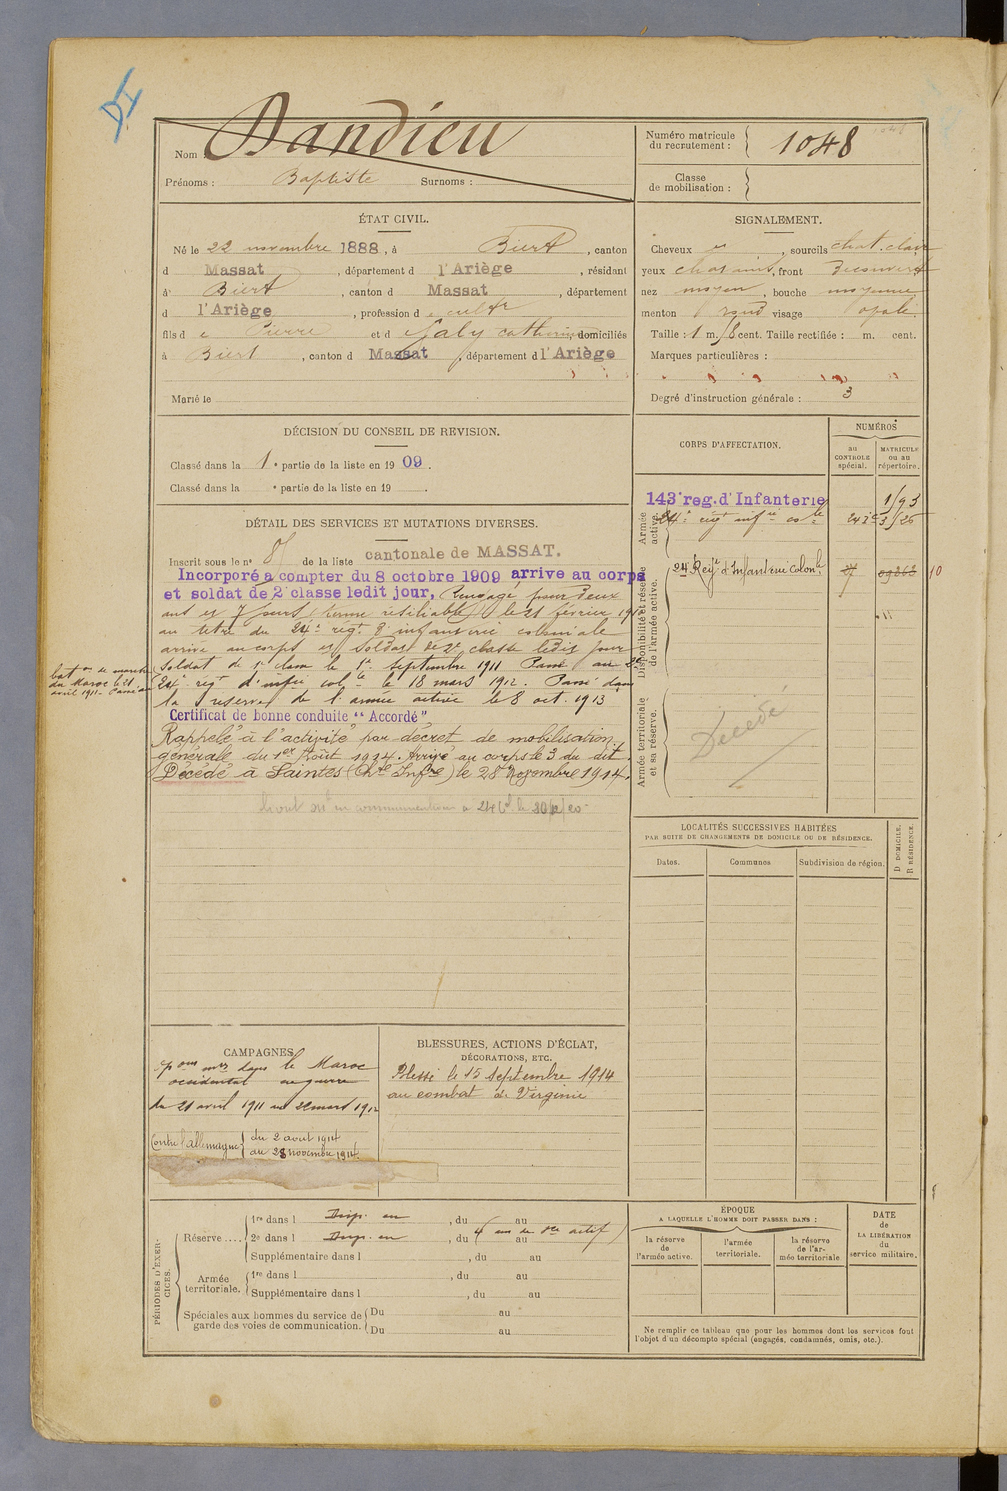 DI
Nom : Dandieu
Prénoms : Baptiste Surnoms :
Numéro matricule du recrutement : 1048
Classe de mobilisation :
ÉTAT CIVIL.
Né le 22 novembre 1888, à Biert, canton
d Massat, département d l'Ariège, résidant
à Biert, canton d Massat, département
d l'Ariège, profession d cultr
fils d e Pierre et d e Galy Catherine, domiciliés
à Biert, canton d Massat, département d l'Ariège
Marié le
SIGNALEMENT.
Cheveux et, sourcils chat. clair
yeux, front Découvert
nez moyen, bouche moyenne
menton rond visage
Taille : 1 m. cent. Taille rectifiée : m. cent.
Marques particulières :
Degré d'instruction générale : 3
DÉCISION DU CONSEIL DE REVISION.
Classé dans la 1 e partie de la liste en 1909.
Classé dans la e partie de la liste en 19 .
DÉTAIL DES SERVICES ET MUTATIONS DIVERSES.
Inscrit sous le no de la liste cantonale de MASSAT.
Incorporé à compter du 8 octobre 1909 arrive au corps
et soldat de 2e classe ledit jour, Rengagé pour deux
ans et 7 jours (terme résiliable) le 21 février
au titre du 24e régt d'infanterie coloniale
arrivé au corps et soldat de 2e classe ledit jour
Soldat de 1e classe le 1er septembre 1911 Passé au
baton de marche du Maroc le 21 avril 1911. Passé au
24e régt d'infrie colle le 18 mars 1912. Passé dans
la réserve de l'armée active le 8 oct. 1913
Certificat de bonne conduite "Accordé"
Rappelé à l'activité par décret de mobilisation
générale du 1er Août 1914. Arrivé au corps le 3 du dit.
Décédé à Saintes (Chte Infre) le 28 Novembre 1914.
CORPS D'AFFECTATION.
NUMÉROS
au CONTROLE spécial.
MATRICULE ou au répertoire.
Armée active.
143e reg. d'Infanterie
24e régt infrie colle
Disponibilité et réserve de l'armée active.
24 Regt d'Infanterie Colonle
10
Armée territoriale et sa réserve.
Décédé
LOCALITÉS SUCCESSIVES HABITÉES
PAR SUITE DE CHANGEMENTS DE DOMICILE OU DE RÉSIDENCE.
Dates.
Communes
Subdivision de région.
D. DOMICILE.
R. RÉSIDENCE.
CAMPAGNES.
opons mres dans le Maroc
occidental en guerre
du 21 avril 1911 au 22 mars 1912
Contre l'allemagne du 2 aout 1914
au 28 novembre 1914.
BLESSURES, ACTIONS D'ÉCLAT,
DÉCORATIONS, ETC.
Blessé le 15 Septembre 1914
au combat de Virginie
PÉRIODES D'EXERCICES.
Réserve .... 1re dans l Disp. en, du au
2e dans l Disp. en, du au
Supplémentaire dans l, du au
Armée territoriale. 1re dans l, du au
Supplémentaire dans l, du au
Spéciales aux hommes du service de garde des voies de communication. Du au
Du au
ÉPOQUE
A LAQUELLE L'HOMME DOIT PASSER DANS :
la réserve de l'armée active.
l'armée territoriale.
la réserve de l'armée territoriale
DATE de LA LIBÉRATION du service militaire.
Ne remplir ce tableau que pour les hommes dont les services font
l'objet d'un décompte spécial (engagés, condamnés, omis, etc.).